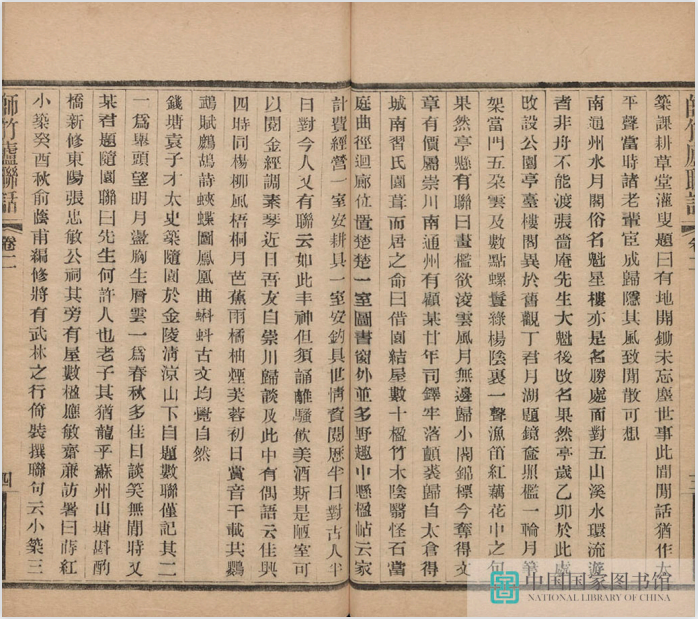 築課耕草堂灌叟題曰有地開鋤未忘塵世事此間閒話猶作太
平聲當時諸老輩宦成歸隱其風致閒散可想
南通州水月閣俗名魁星樓亦是名勝處而對五山溪水環流遊
者非舟不能渡張嗇庵先生大魁後改名果然亭歲乙卯於此處
改設公園亭臺樓閣異於舊觀丁君月湖題鏡奩照檻一輪月筆
架當門五朵雲及數點螺鬟綠楊陰裏一聲漁笛紅藕花中之句
果然亭懸有聯曰畫檻欲淩雲風月無邊歸小閣錦標今奪得文
章有價屬崇川南通州有顧某廿年司鐸牢落顏裘歸自太倉得
城南習氏園葺而居之命曰借園結屋數十楹竹木陰翳怪石當
庭曲徑迴廊位置楚楚一室圖書窗外並多野趣中懸楹帖云家
計費經營一室安耕具一室安釣具世情資閱歷半日對古人半
日對今人又有聯云如此丰神但須誦離騷飲美酒斯是陋室可
以閱金經調素琴近日吾友自崇川歸談及此中有偶語云佳興
四時同楊柳風梧桐月芭蕉雨橘柚煙芙蓉初日賞音千載共鸚
鵡賦鷓鴣詩蛺蝶圖鳳凰曲蝌蚪古文均覺自然
錢塘袁子才太史築隨園於金陵清涼山下自題數聯僅記其二
一爲舉頭望明月盪胸生層雲一爲春秋多佳日談笑無閒時又
某君題隨園聯曰先生何許人也老子其猶龍乎蘇州山塘斟酌
橋新修東陽張忠敏公祠其旁有屋數楹應敏齋廉訪署曰蒔紅
小築癸酉秋俞蔭甫編修將有武林之行倚裝撰聯句云小築三
師竹廬聯話
卷二
四
中国国家图书馆
NATIONAL LIBRARY OF CHINA